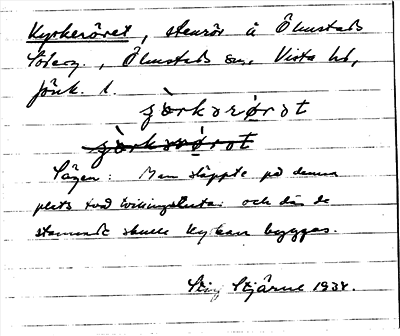 Kyrkeröret, stenrör å Ölmstads
Söderg., Ölmstads sn, Vista hd,
Jönk. l.
Sägen: Man släppte på denna
plats två tvillingstutar och där de
stannade skulle kyrkan byggas.
Stig Stjärne 1934.